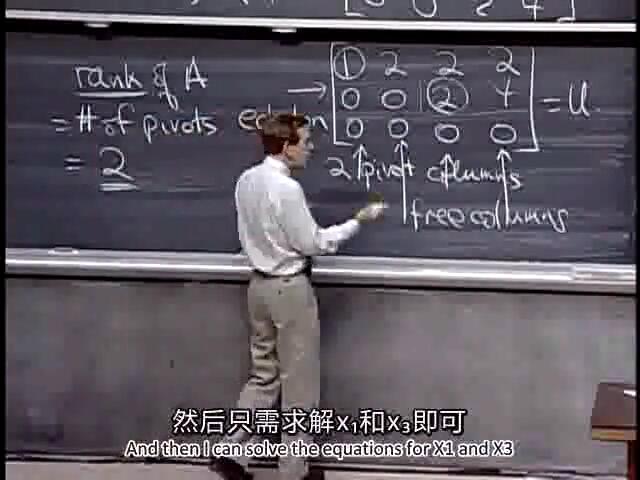 rank of A
= # of pivots
= 2
echelon
→ [1 2 2 2
0 0 2 4
0 0 0 0] = U
2 pivot columns
free columns
然后只需求解x₁和x₃即可
And then I can solve the equations for X1 and X3